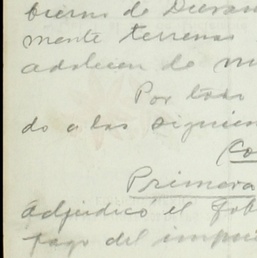 bierno de Duran
mente terrenos
adolecen de nu
Por todo
do a las siguien
(Co
Primera
adjudicó el Gob
pago del impu